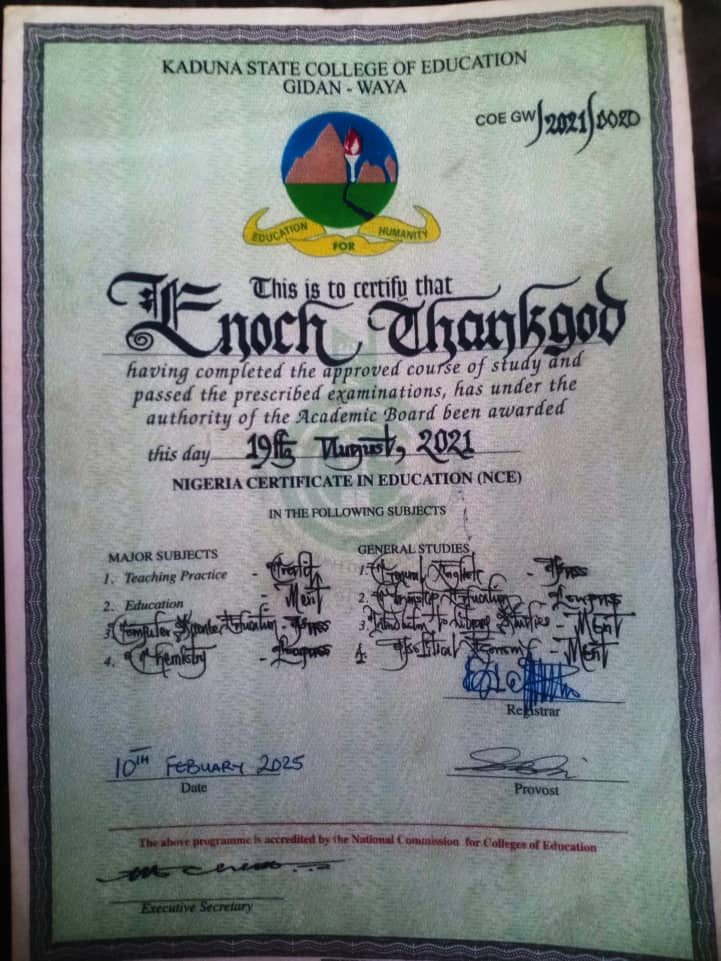 KADUNA STATE COLLEGE OF EDUCATION
GIDAN - WAYA
COE GW/2021/0020
EDUCATION FOR HUMANITY
This is to certify that
Enoch Thankgod
having completed the approved course of study and
passed the prescribed examinations, has under the
authority of the Academic Board been awarded
this day 19th August, 2021
NIGERIA CERTIFICATE IN EDUCATION (NCE)
IN THE FOLLOWING SUBJECTS
MAJOR SUBJECTS
1. Teaching Practice - Credit
2. Education - Merit
3. Computer Science Education - Pass
4. Chemistry - Lowpass
GENERAL STUDIES
1. General English - Pass
2. Education - Lowpass
3. Introduction to Library Studies - Merit
4. Political Economy - Merit
Registrar
10TH FEBUARY 2025
Date
Provost
The above programme is accredited by the National Commission for Colleges of Education
Executive Secretary